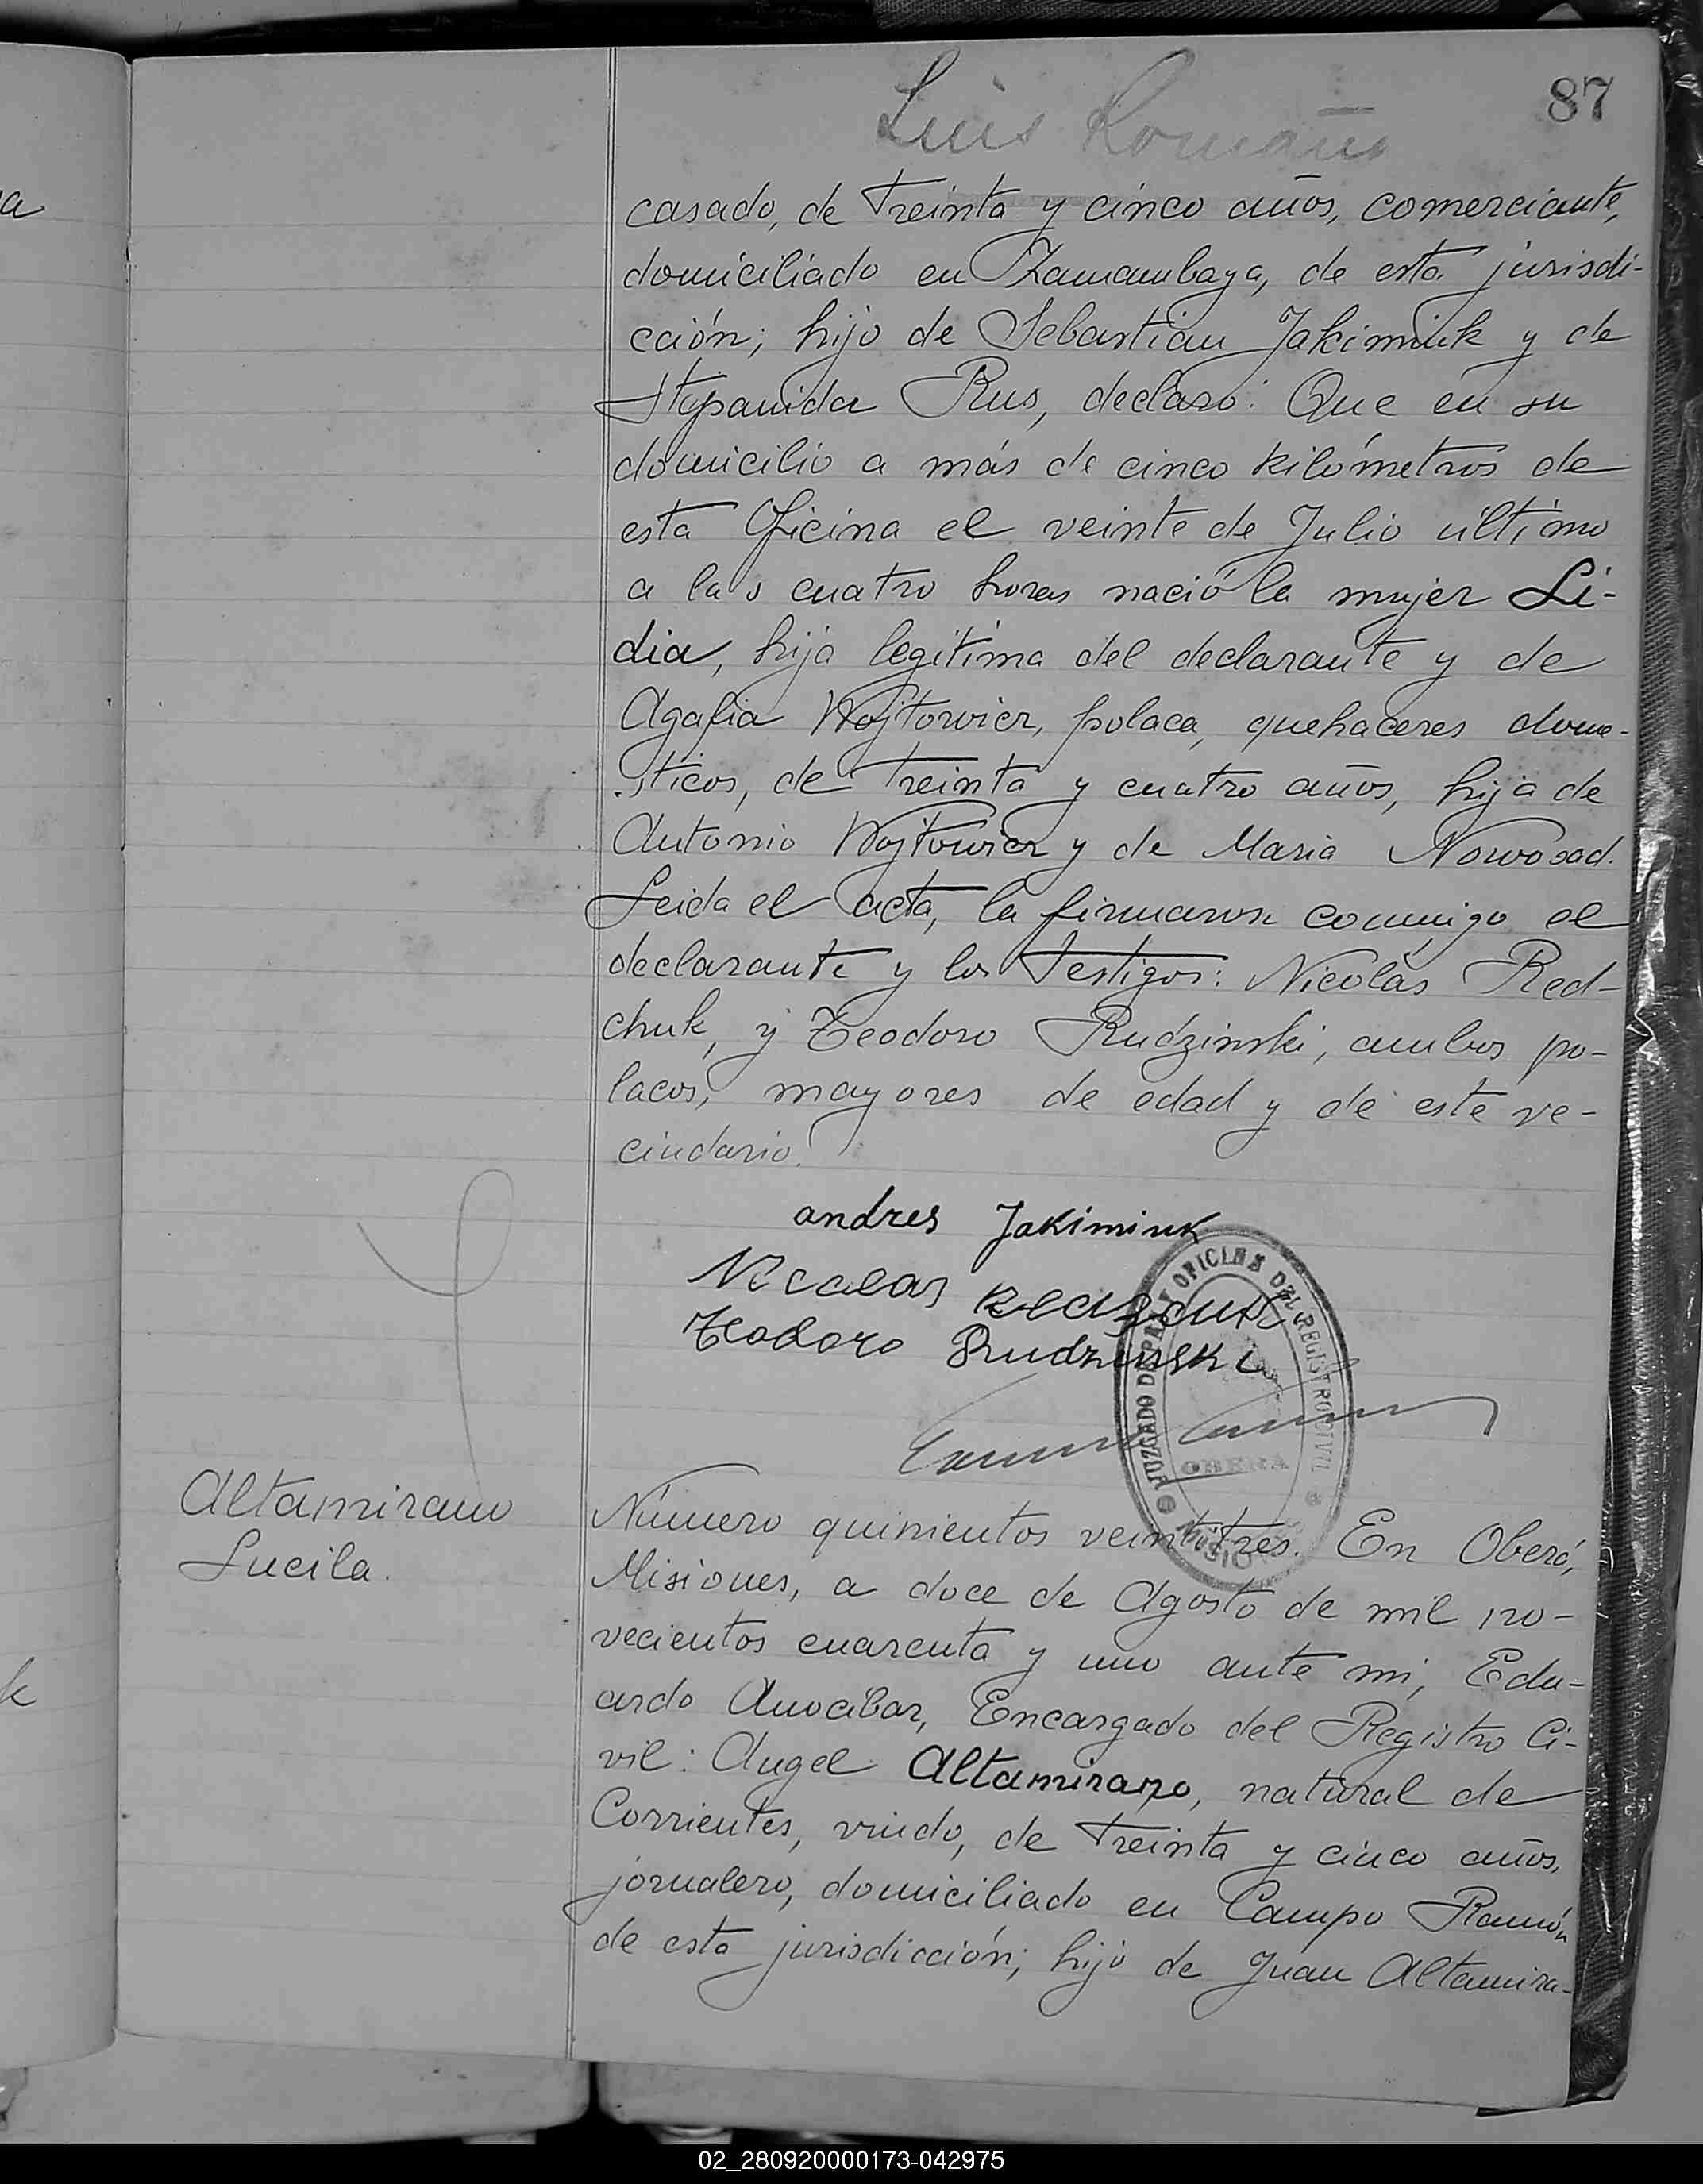 87
Luis Romaño
a
casado, de treinta y cinco años, comerciante,
domiciliado en Zamambaya, de esta jurisdi-
cción; hijo de Sebastian Jakimiuk y de
Stepanida Rus, declaró: Que en su
domicilio a más de cinco kilómetros de
esta Oficina el veinte de Julio último
a las cuatro horas nació la mujer Li-
dia, hija legitima del declarante y de
Agafia Wojtowicz, polaca, quehaceres dome-
sticos, de treinta y cuatro años, hija de
Antonio Wojtowicz y de Maria Nowosad.
Leida el acta, la firmaron conmigo el
declarante y los testigos: Nicolás Red-
chuk, y Teodoro Rudzinski, ambos po-
lacos, mayores de edad y de este ve-
cindario.
andres Jakimiuk
Nicolas
Teodoro Rudzinski
JUZGADO DE PAZ Y OFICINA DEL REGISTRO CIVIL
OBERA
MISIONES
Altamirano
Lucila.
Número quinientos veintitres. En Oberá,
Misiones, a doce de Agosto de mil no-
vecientos cuarenta y uno ante mi, Edu-
ardo Anocibar, Encargado del Registro Ci-
vil: Angel Altamirano, natural de
Corrientes, viudo, de treinta y cinco años,
jornalero, domiciliado en Campo Ramón
de esta jurisdicción; hijo de Juan Altamira-
k
02_280920000173-042975